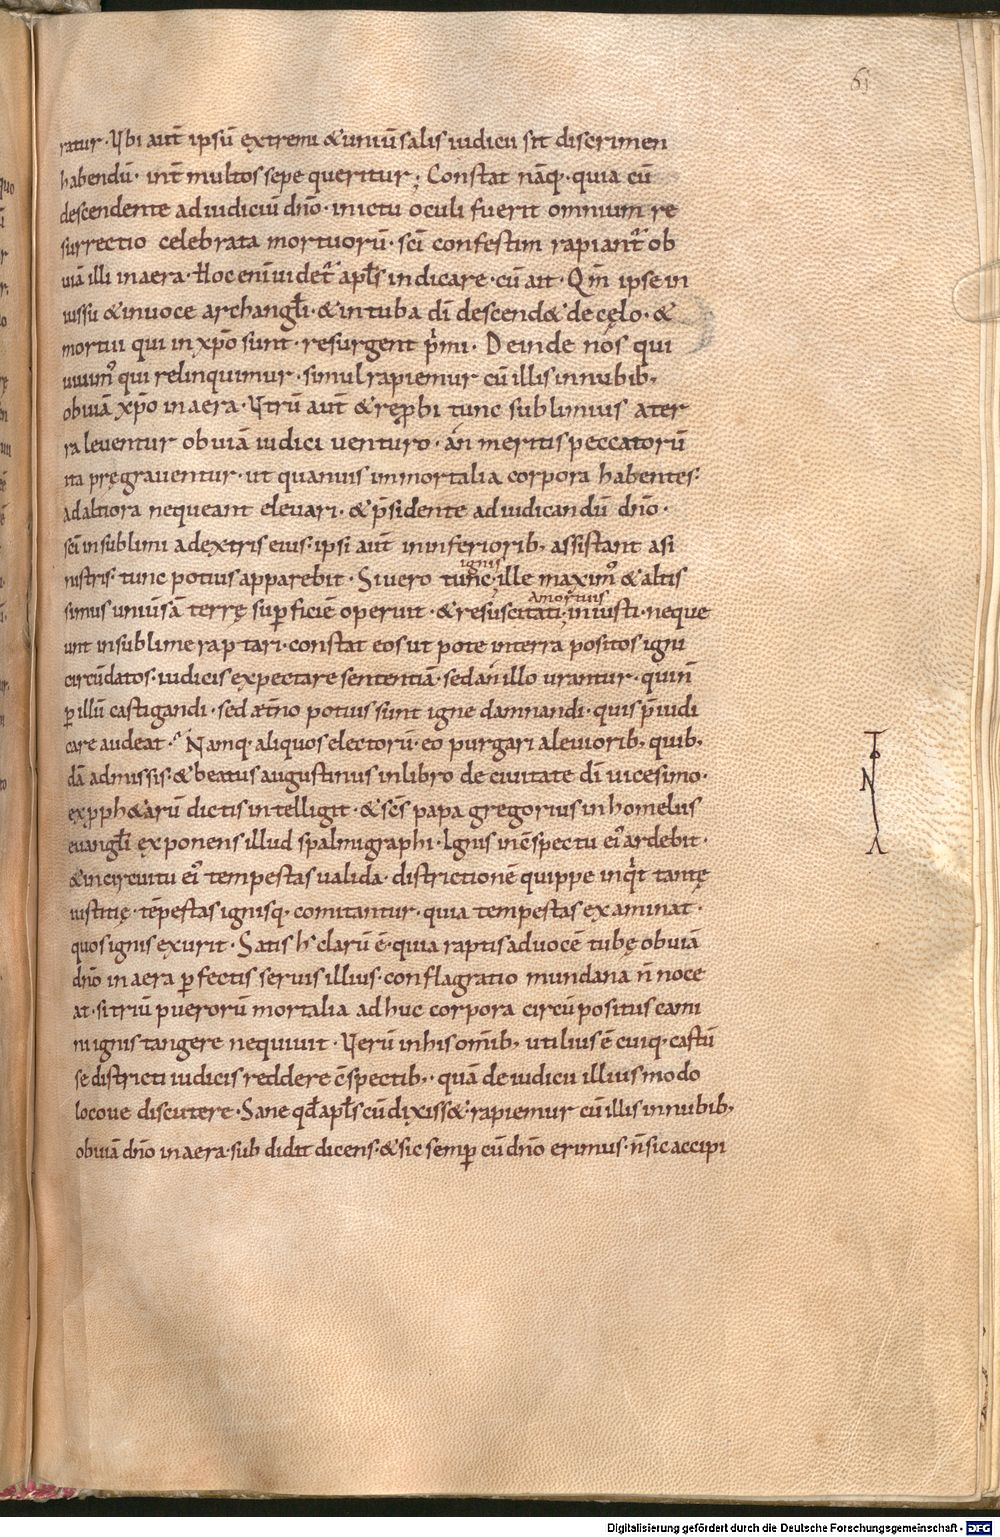 61
ratur · Ubi aut̄ ipsū extremi & uniu̅salis iudicii sit discrimen
habendū · int̄ multos sepe queritur; Constat nāq · quia cū
descendente ad iudiciū dn̄o · in ictu oculi fuerit omnium re
surrectio celebrata mortuorū · sc̄i confestim rapiant̄ ob
uiā illi in aera · Hoc enī uidet̄ apl̄s indicare · cū ait · Qm̄ ipse in
iussu & in uoce archangl̄i · & in tuba dī descend& de cęlo · &
mortui qui in xp̄o sunt · resurgent p̄mi · Deinde nos qui
uiuim᾿ qui relinquimur · simul rapiemur cū illis in nubib,
obuiā xp̄o in aera · Utrū aut̄ & rep̱bi tunc sublimius a ter
ra leuentur obuiā iudici uenturo · án meritis peccatorū
ita pręgrauentur · ut quamuis immortalia corpora habentes ·
ad altiora nequeant eleuari · & p̄sidente ad iudicandū dn̄o ·
sc̄i in sublimi a dextris eius · ipsi aut̄ in inferiorib, assistant a si
nistris · tunc potius apparebit · Si uero tunc ignis ille maxim᾿ & altis
simus uniu̅sā terrę sup̱ficiē operuit · & resuscitati a mortuis iniusti · neque
unt in sublime raptari · constat eos utpote in terra positos igni
circūdatos · iudicis expectare sententiā · sed án illo urantur · qui ń
p̱ illū castigandi · sed æt̄no potius sunt igne damnandi · quis p̄iudi
care audeat · Namq · aliquos electorū · eo purgari a leuiorib, quib,
dā admissis · & beatus augustinus in libro de ciuitate dī uicesimo ·
ex pph&arū dictis intelligit · & sc̄s papa gregorius in homeliis
euangl̄i exponens illud spalmigraphi · Ignis in c̄spectu ei᾿ ardebit ·
& in circuitu ei᾿ tempestas ualida · districtionē quippe inqt tantę
iustitię · tēpestas ignisq · comitantur · quia tempestas examinat ·
quos ignis exurit · Satis h᾿ clarū ē · quia raptis ad uocē tubę obuiā
dn̄o in aera p̱fectis seruis illius · conflagratio mundana n̄ noce
at · si triū puerorū mortalia adhuc corpora circūpositus cami
ni ignis tangere nequiuit · Uerū in his om̄ib, utilius ē cuiq · castū
se districti iudicis reddere c̄spectib, · quā de iudicii illius modo
locoue discutere · Sane qd̄ apl̄s cū dixiss& · rapiemur cū illis in nubib,
obuiā dn̄o in aera · subdidit dicens · & sic semp̱ cū dn̄o erimus · n̄ sic accipi
Digitalisierung gefördert durch die Deutsche Forschungsgemeinschaft - DFG